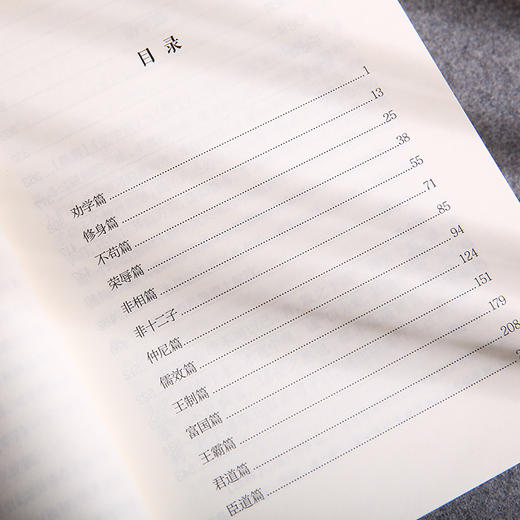 目录
劝学篇 …… 1
修身篇 …… 13
不苟篇 …… 25
荣辱篇 …… 38
非相篇 …… 55
非十二子 …… 71
仲尼篇 …… 85
儒效篇 …… 94
王制篇 …… 124
富国篇 …… 151
王霸篇 …… 179
君道篇 …… 208
臣道篇 ……